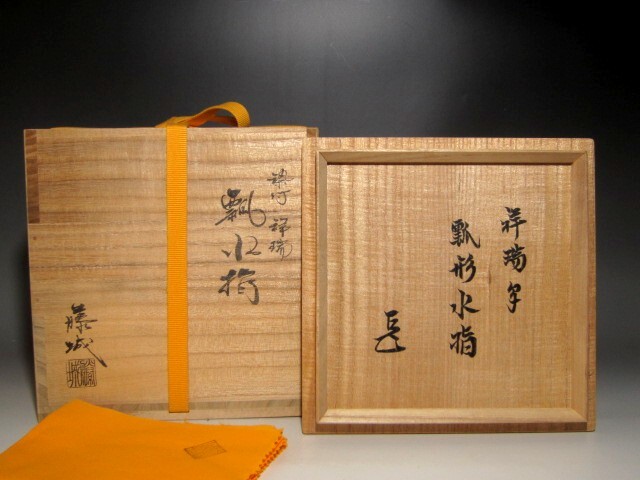 染付 祥瑞
瓢水指
藤城
祥瑞写
瓢形水指